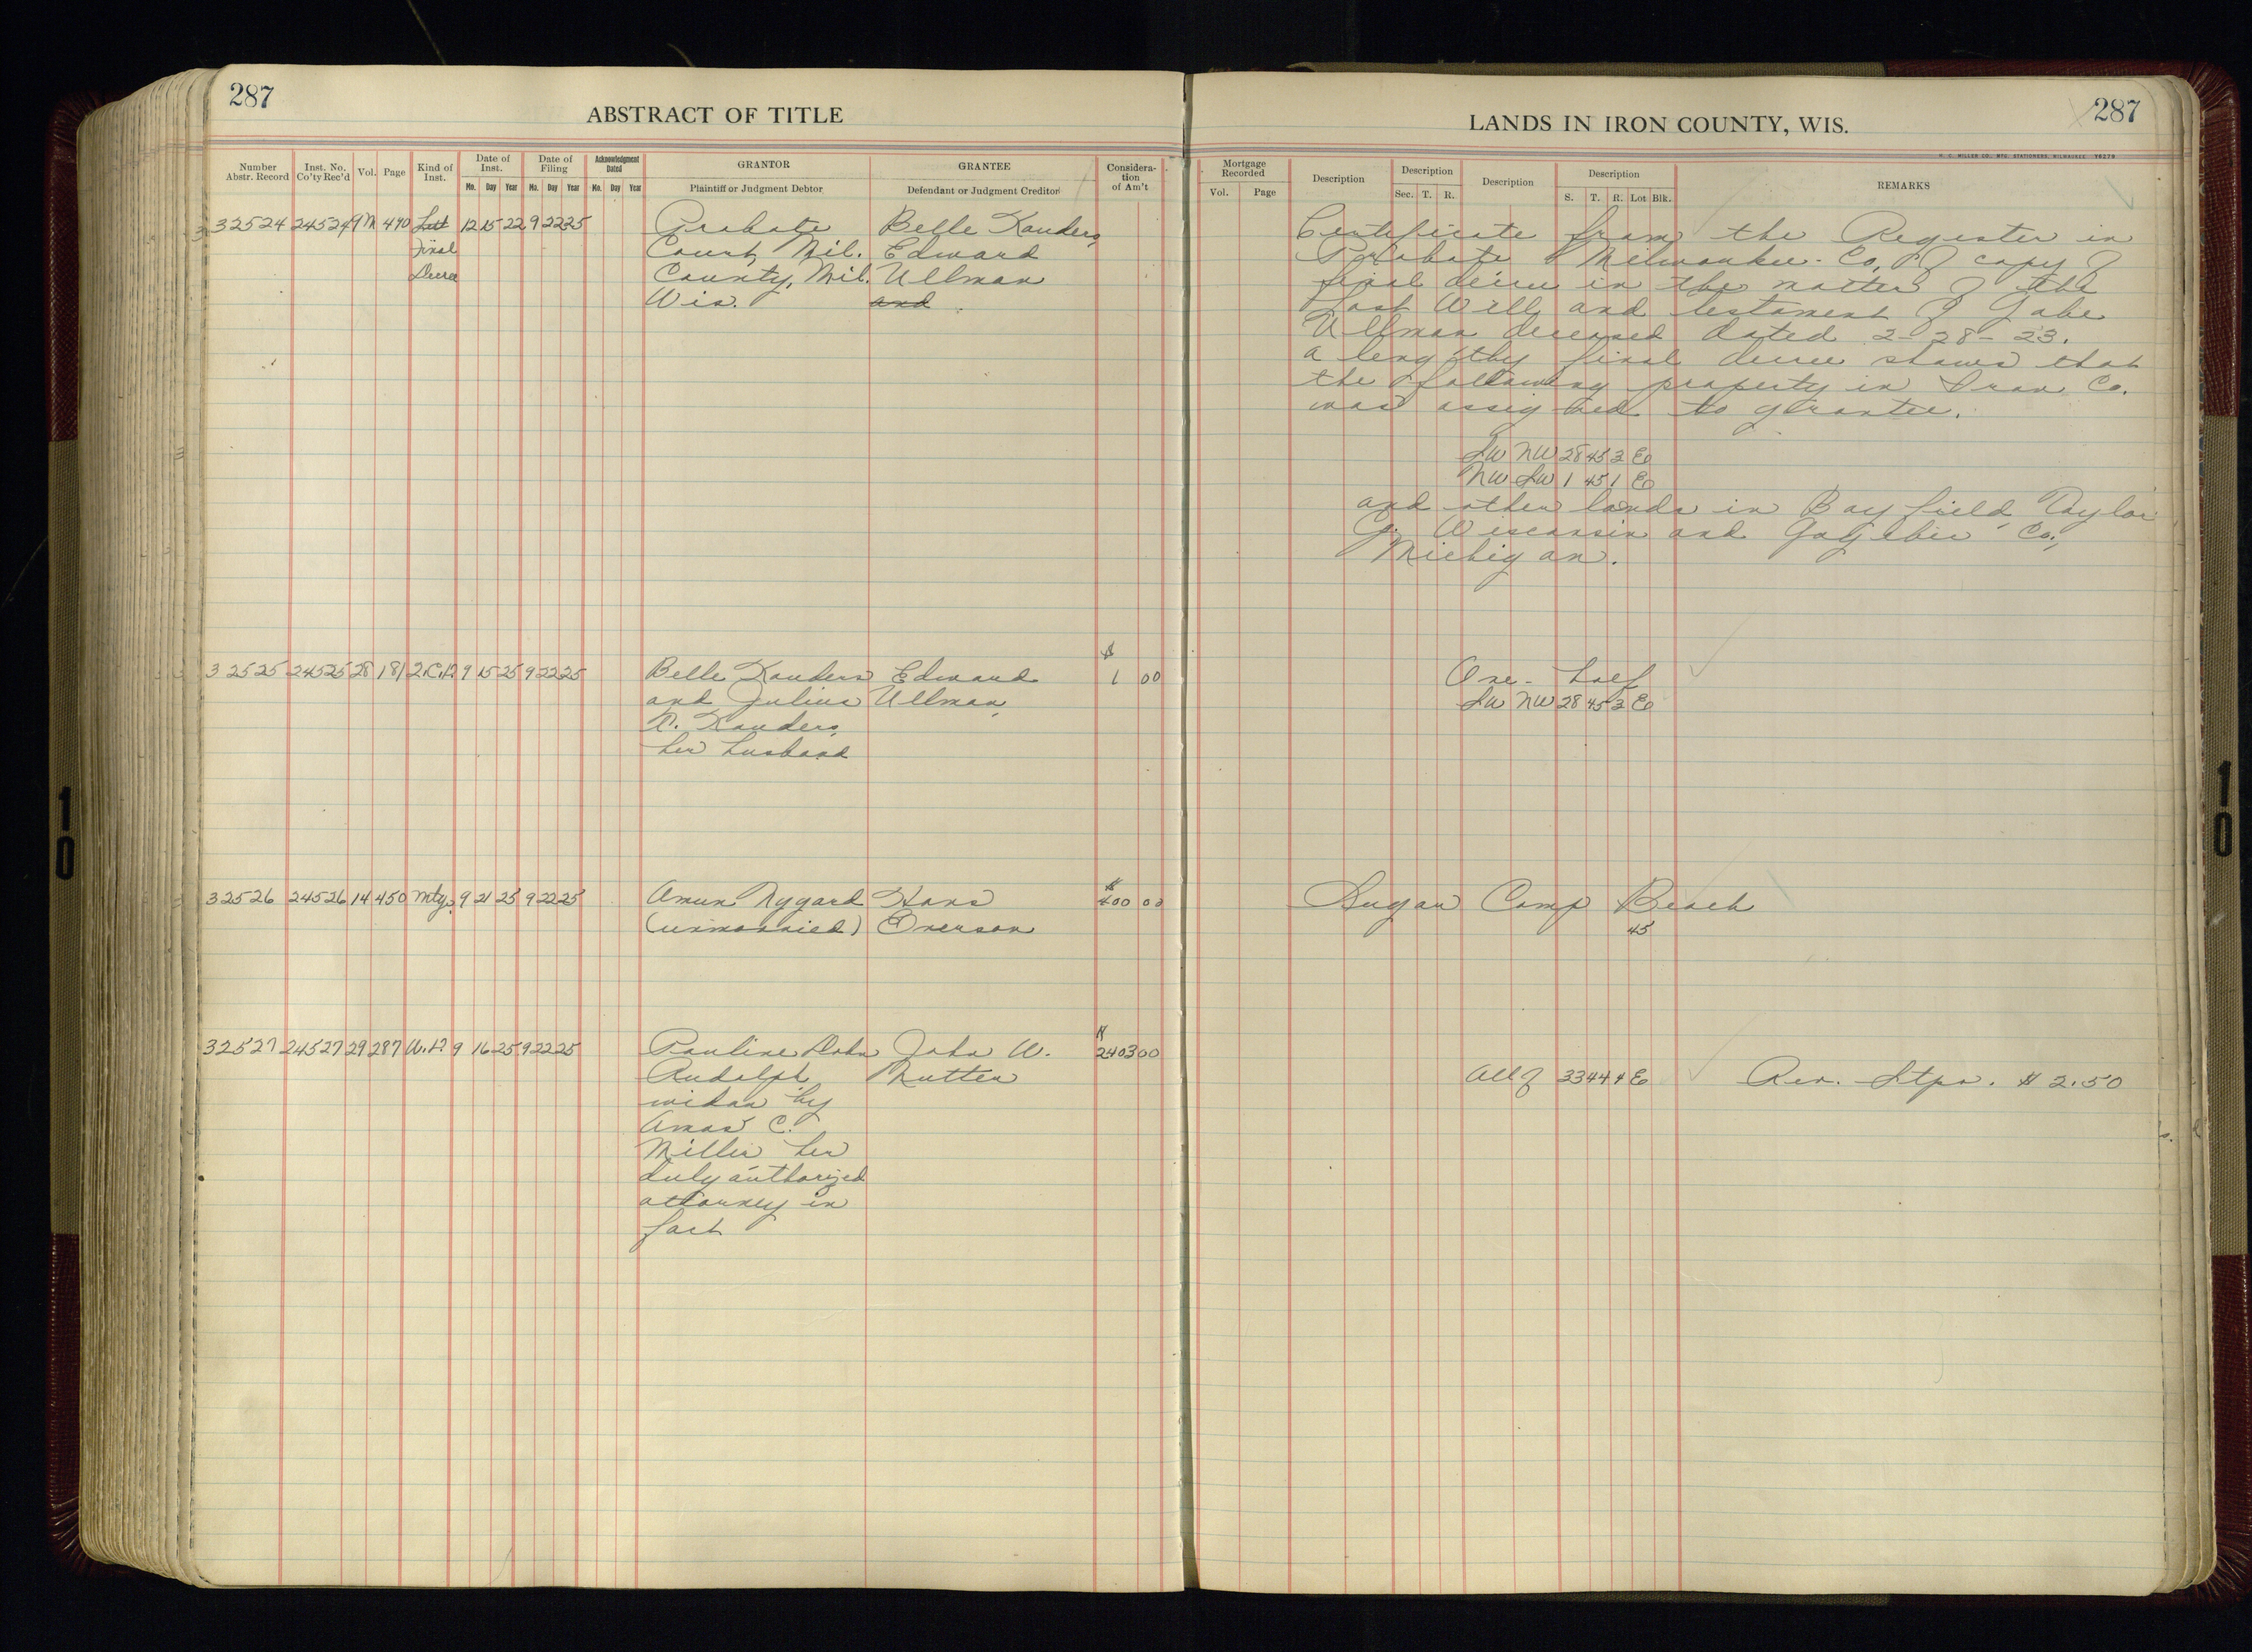 287
ABSTRACT OF TITLE
Number Abstr. Record
Inst. No. Co'ty Rec'd
Vol.
Page
Kind of Inst.
Date of Inst.
Mo. Day Year
Date of Filing
Mo. Day Year
Acknowledgment Dated
Mo. Day Year
GRANTOR
Plaintiff or Judgment Debtor
GRANTEE
Defendant or Judgment Creditor
Considera-tion of Am't
32524 24524 9M 490 12 15 22 9 22 25 Probate Belle Kanders,
Final Court, Mil. Edward
Decree County, Mil. Ullman
Wis. and
$
32525 24525 28 181 2.C.D. 9 15 25 9 22 25 Belle Kanders Edward 1 00
and Julius Ullman,
D. Kanders,
her husband
$
32526 24526 14 450 Mtg. 9 21 25 9 22 25 Amun Nygard Hans 400 00
(unmarried) Overson
$
32527 24527 29 287 W.D. 9 16 25 9 22 25 Pauline Dohn John W. 2403 00
Rudolph Mutter
widow by
Amos C.
Miller her
duly authorized
attorney in
fact
287
LANDS IN IRON COUNTY, WIS.
H. C. MILLER CO., MFG. STATIONERS, MILWAUKEE Y6270
Mortgage Recorded
Vol. Page
Description
Description
Sec. T. R.
Description
Description
S. T. R. Lot Blk.
REMARKS
Certificate from the Register in
Probate Milwaukee Co, of copy of
final decree in the matter of the
Last Will and testament of Gabe
Ullman deceased dated 2-28-23.
a lengthy final decree shows that
the following property in Iron Co.
was assigned to grantee.
SW NW 28 45 2 E
NW SW 1 45 1 E
and other lands in Bayfield, Taylor
Wisconsin and Gogebic Co.,
Michigan.
One-half
SW NW 28 45 2 E
Sugar Camp Beach
45
All of 33 44 4 E Rev. Stps. $2.50
10
10